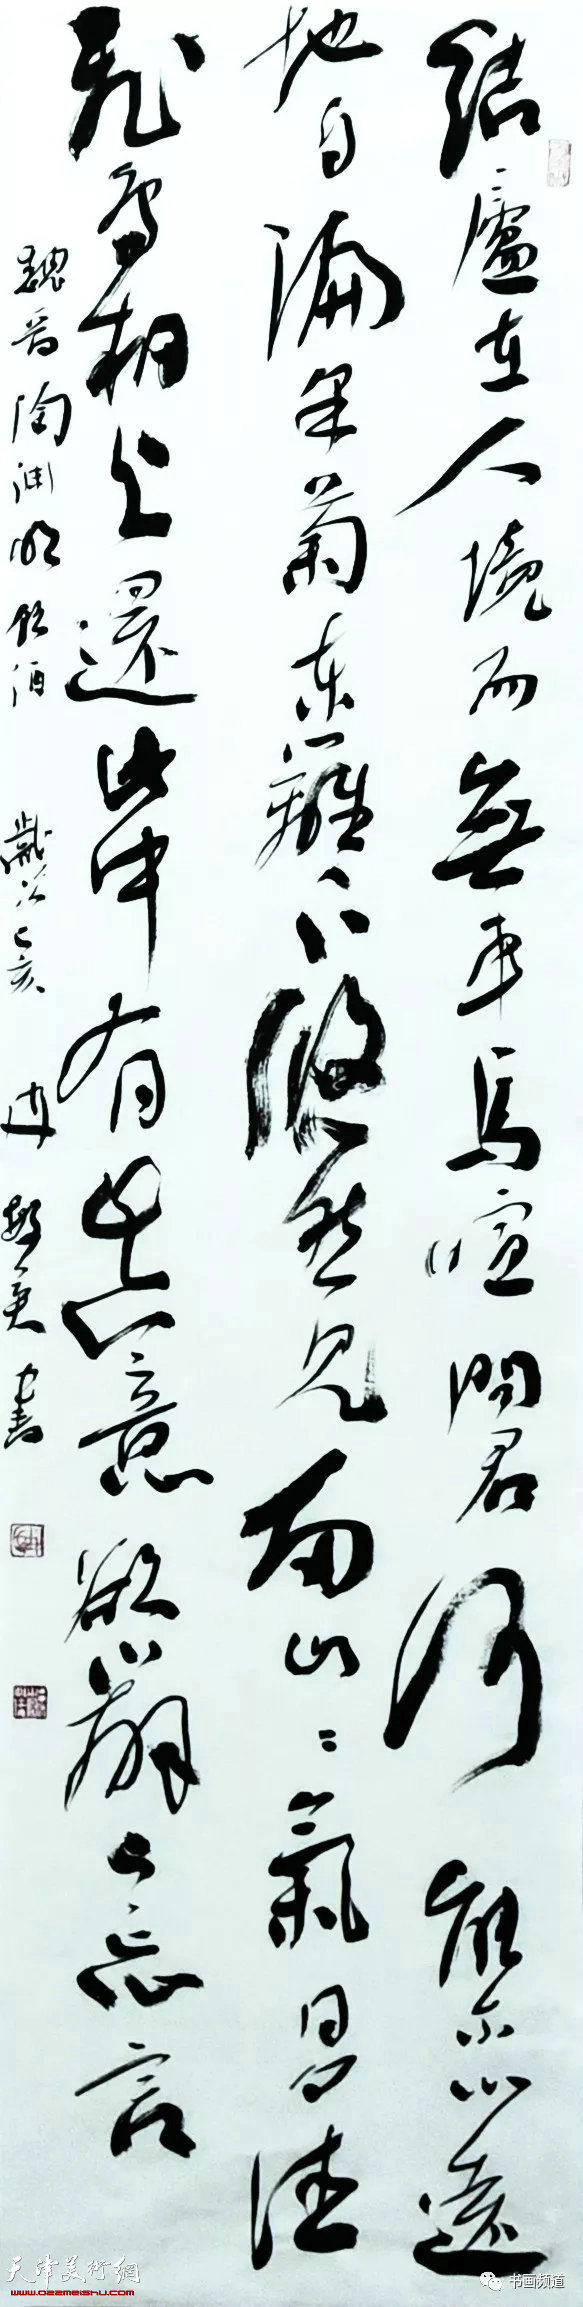 結廬在人境而無車馬喧問君何能尔心遠
地自偏采菊東籬下悠然見南山〻氣日夕佳
飛鳥相与還此中有真意欲辨已忘言
魏晋陶渊明飲酒 歲次己亥 冉繁英書
天津美術網
www.022meishu.com
书画频道